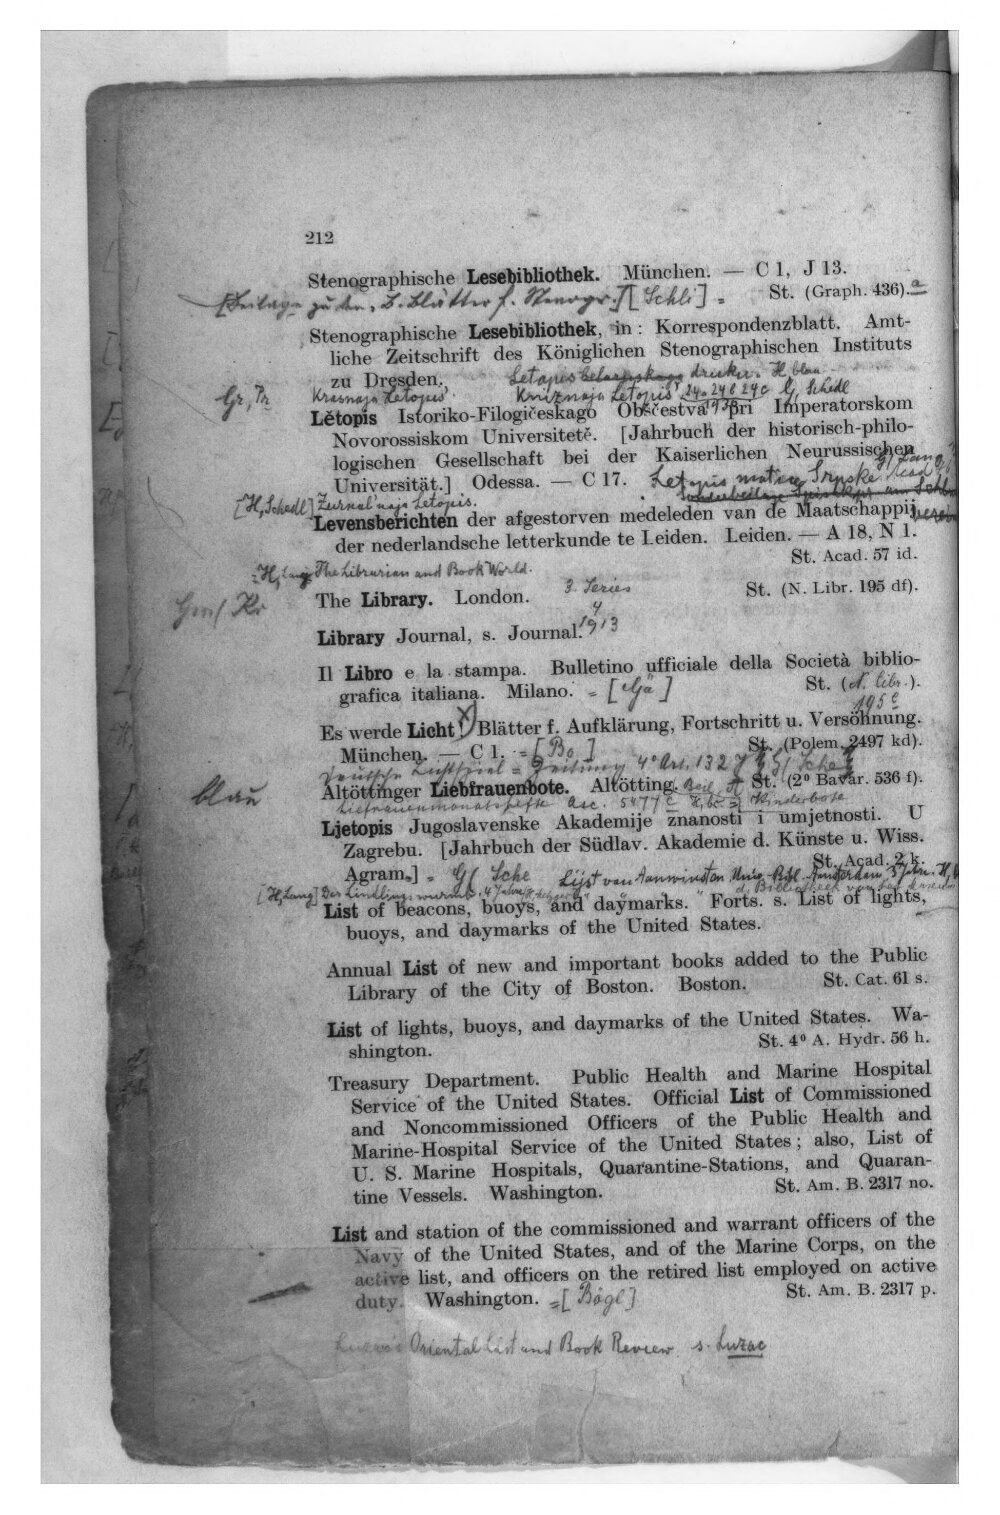 212
Stenographische Lesebibliothek. München. — C 1, J 13.
[Beilage zu den L. Blätter f. Stenogr.] [Schli] = St. (Graph. 436).a
Stenographische Lesebibliothek, in: Korrespondenzblatt. Amt-
liche Zeitschrift des Königlichen Stenographischen Instituts
zu Dresden. Letopis drucku. H, blau
Gr, Pr Krasnaja Letopis'. Knižnaja Letopis' 24a 24b 24c G, Schedl
Lětopis Istoriko-Filogičeskago Obščestva pri Imperatorskom
Novorossiskom Universitetě. [Jahrbuch der historisch-philo-
logischen Gesellschaft bei der Kaiserlichen Neurussischen
Universität.] Odessa. — C 17. Letopis matice Srpske
[H, Schedl] Žurnal'naja Letopis.
Levensberichten der afgestorven medeleden van de Maatschappij
der nederlandsche letterkunde te Leiden. Leiden. — A 18, N 1.
St. Acad. 57 id.
H, Lang The Librarian and Book World.
The Library. London. 3. Series St. (N. Libr. 195 df).
4
Library Journal, s. Journal. 1913
Il Libro e la stampa. Bulletino ufficiale della Società biblio-
grafica italiana. Milano. = [Gä] St. (N. libr.).
195 e
Es werde Licht! Blätter f. Aufklärung, Fortschritt u. Versöhnung.
München. — C 1. = [Bo] St. (Polem. 2497 kd).
Deutsche Lichtspiel = Zeitung 4° Art. 132
blau Altöttinger Liebfrauenbote. Altötting. Beil. St. (2° Bavar. 536 f).
Liefrauenmonatshefte Asc. 5477 Kinderbote
Ljetopis Jugoslavenske Akademije znanosti i umjetnosti. U
Zagrebu. [Jahrbuch der Südlav. Akademie d. Künste u. Wiss.
Agram.] = G( Sche St. Acad. 2 k.
Lijst van Aanwinsten Univ. Bibl. Amsterdam
[H, Lang] Der Lindlingswurmb.
List of beacons, buoys, and daymarks. Forts. s. List of lights,
buoys, and daymarks of the United States.
Annual List of new and important books added to the Public
Library of the City of Boston. Boston. St. Cat. 61 s.
List of lights, buoys, and daymarks of the United States. Wa-
shington. St. 4° A. Hydr. 56 h.
Treasury Department. Public Health and Marine Hospital
Service of the United States. Official List of Commissioned
and Noncommissioned Officers of the Public Health and
Marine-Hospital Service of the United States; also, List of
U. S. Marine Hospitals, Quarantine-Stations, and Quaran-
tine Vessels. Washington. St. Am. B. 2317 no.
List and station of the commissioned and warrant officers of the
Navy of the United States, and of the Marine Corps, on the
active list, and officers on the retired list employed on active
duty. Washington. = [Bögl] St. Am. B. 2317 p.
Luzac's Oriental List and Book Review s. Luzac